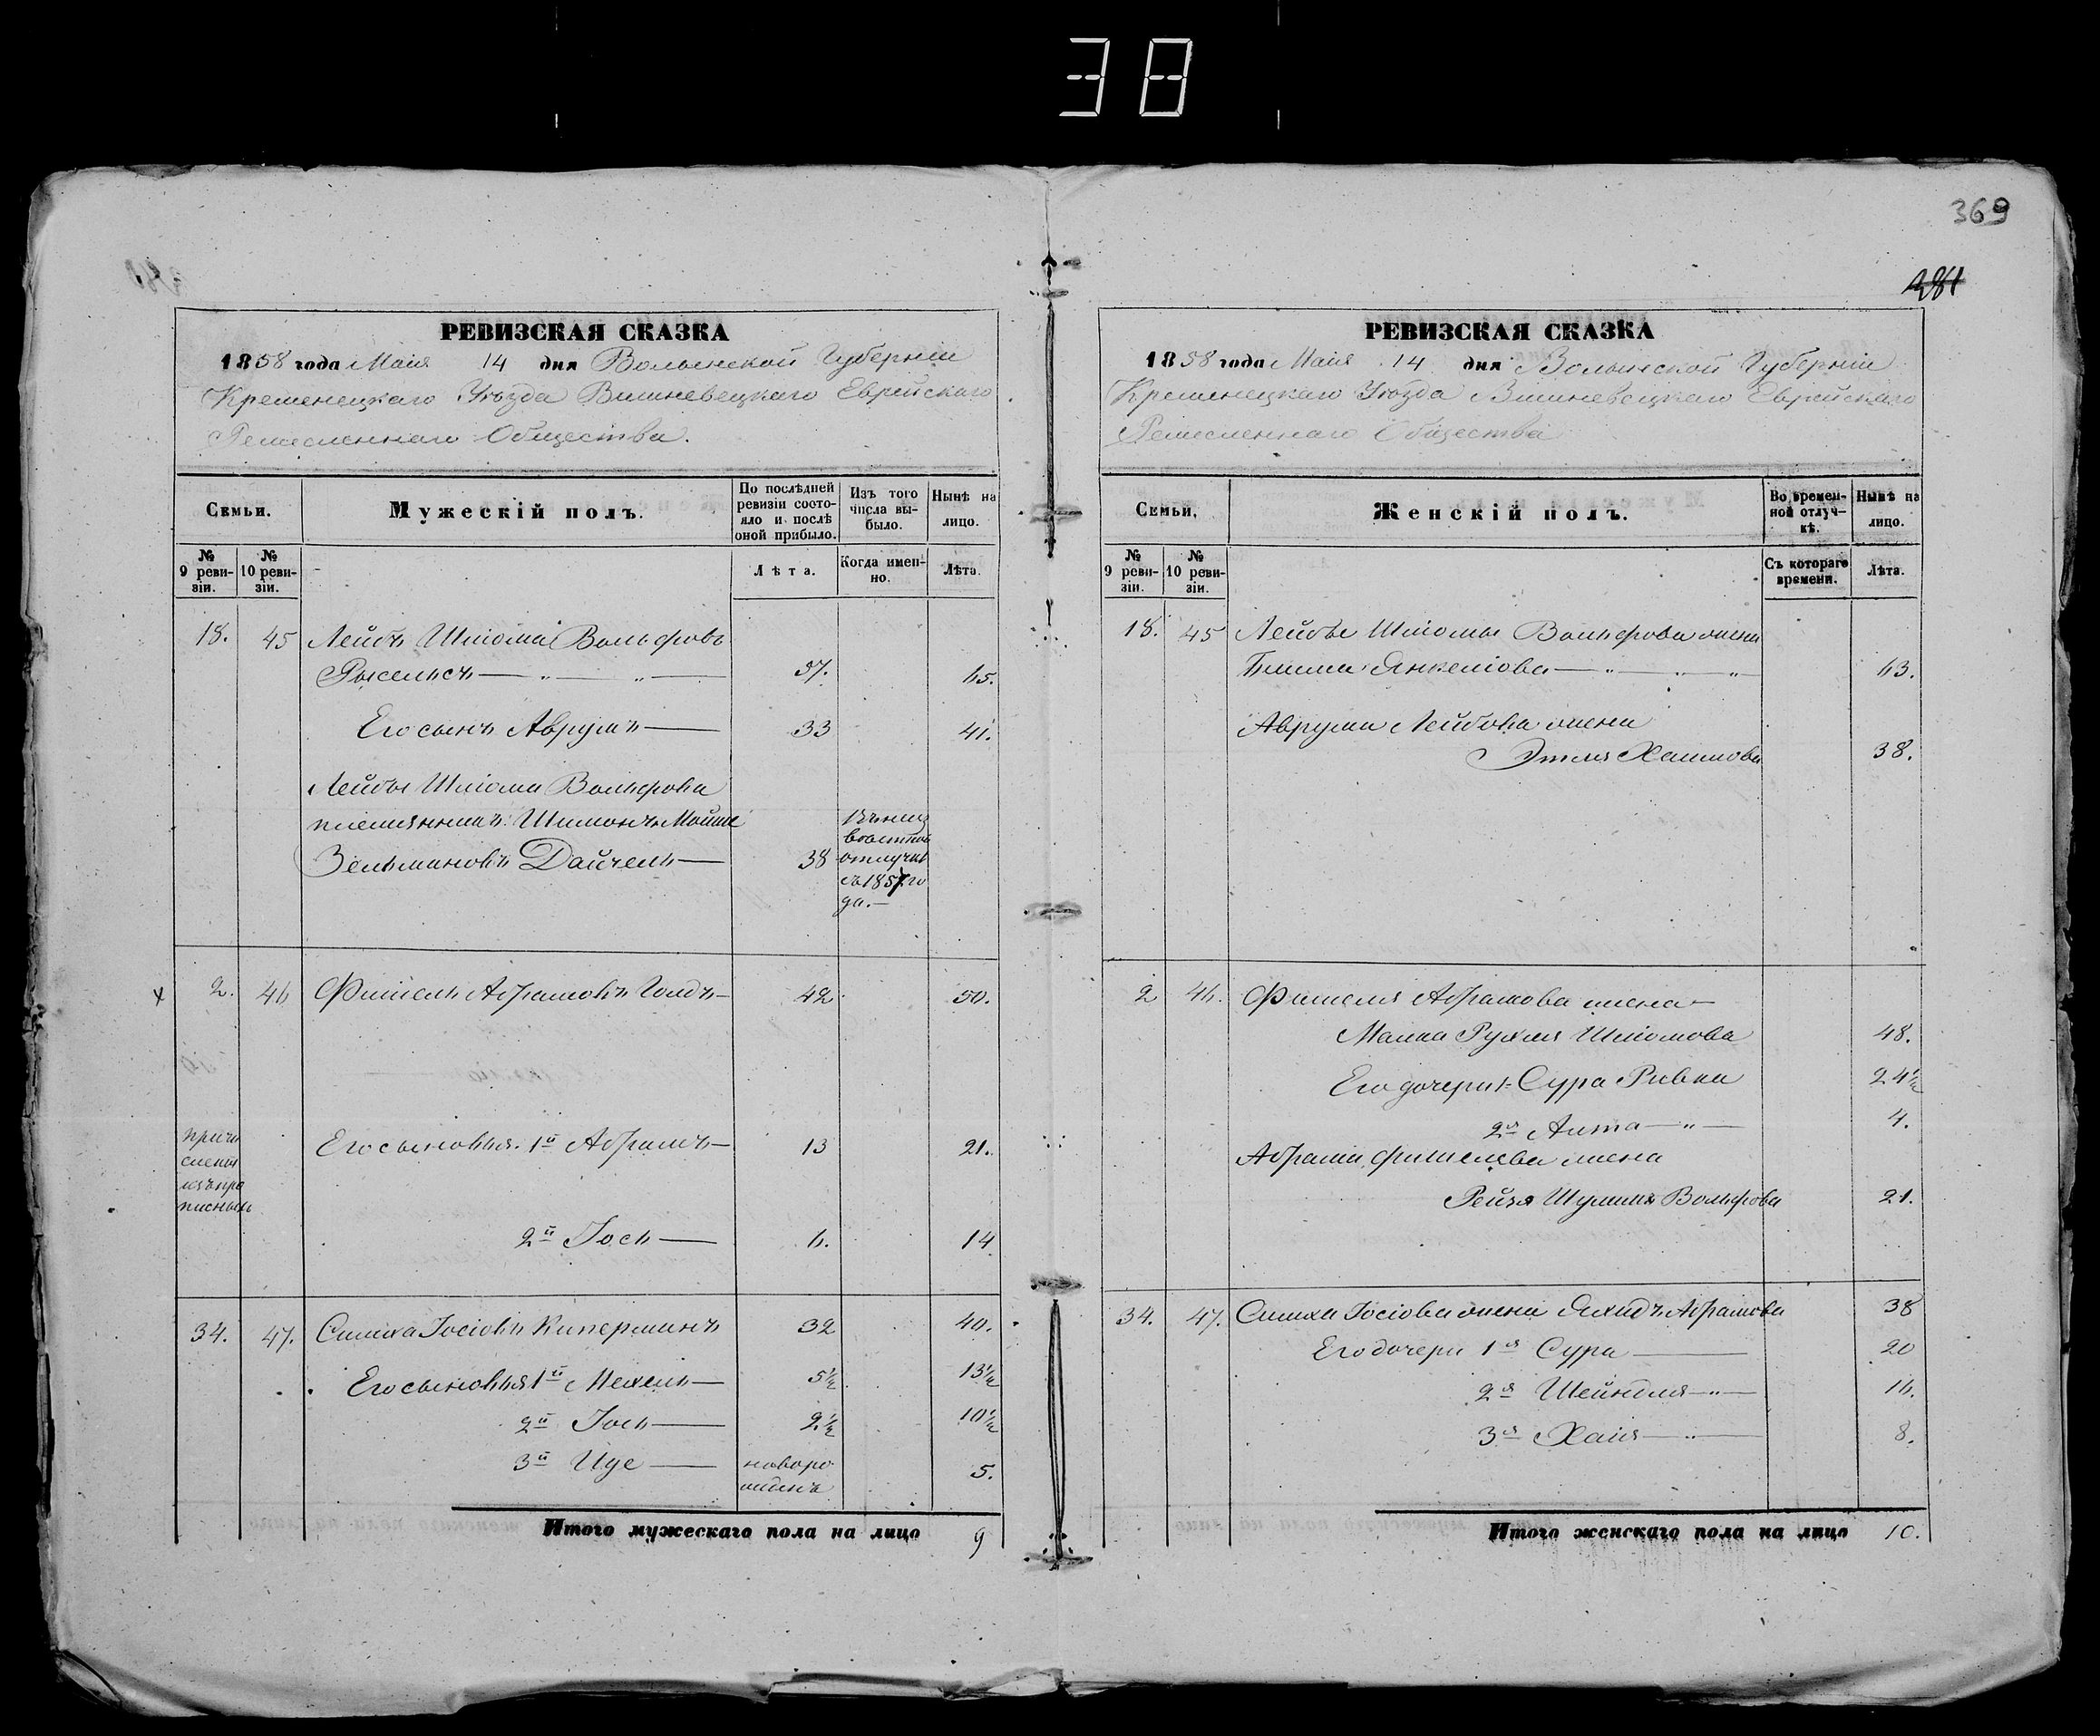 38
369
381
РЕВИЗСКАЯ СКАЗКА
1858 года Маія 14 дня Волынской Губерніи
Кременецкаго Уѣзда Вишневецкаго Еврейскаго
Ремесленнаго Общества.
Семьи.
Мужескій полъ.
По послѣдней ревизіи состояло и послѣ оной прибыло.
Изъ того числа выбыло.
Нынѣ на лицо.
№ 9 ревизіи.
№ 10 ревизіи.
Лѣта.
Когда именно.
Лѣта.
18. 45 Лейбъ Шлиома Вольфовъ
57. 65.
Его сынъ Аврумъ 33 41.
Лейбы Шлиома Вольфова
племянникъ Шимонъ Мошко
Зельмановъ Дайчель 38
отлучкѣ
съ 1857 го
да.
2. 46 Фишель Абрамовъ Голдъ 42 50.
причи
сленъ
изъ про
писныхъ
Его сыновья 1й Абрамъ 13 21.
2й Іось 6. 14
34. 47. Симха Іосіовъ Киперманъ 32 40.
Его сыновья 1й Мехель 5½ 13½
2й Іось 2½ 10½
3й Иде новоро
жденъ 5.
Итого мужескаго пола на лицо 9
РЕВИЗСКАЯ СКАЗКА
1858 года Маія 14 дня Волынской Губерніи
Кременецкаго Уѣзда Вишневецкаго Еврейскаго
Ремесленнаго Общества
Семьи.
Женскій полъ.
Во временной отлучкѣ.
Нынѣ на лицо.
№ 9 ревизіи.
№ 10 ревизіи.
Съ котораго времени.
Лѣта.
18. 45 Лейбы Шлиомы Вольфова жена
Янкеліова 63.
Аврума Лейбова жена
Этля Хаимова 38.
2 46. Фишеля Абрамова жена
Малка Рухля Шліомова 48.
Его дочери 1 Сура Ривка 24½
2я 4.
Абрама Фишелева жена
Рейзя Шулима Вольфова 21.
34. 47. Симха Іосіова жена Абрамова 38
Его дочери 1я Сура 20
2я Шейндля 16.
3я Хаія 8.
Итого женскаго пола на лицо 10.